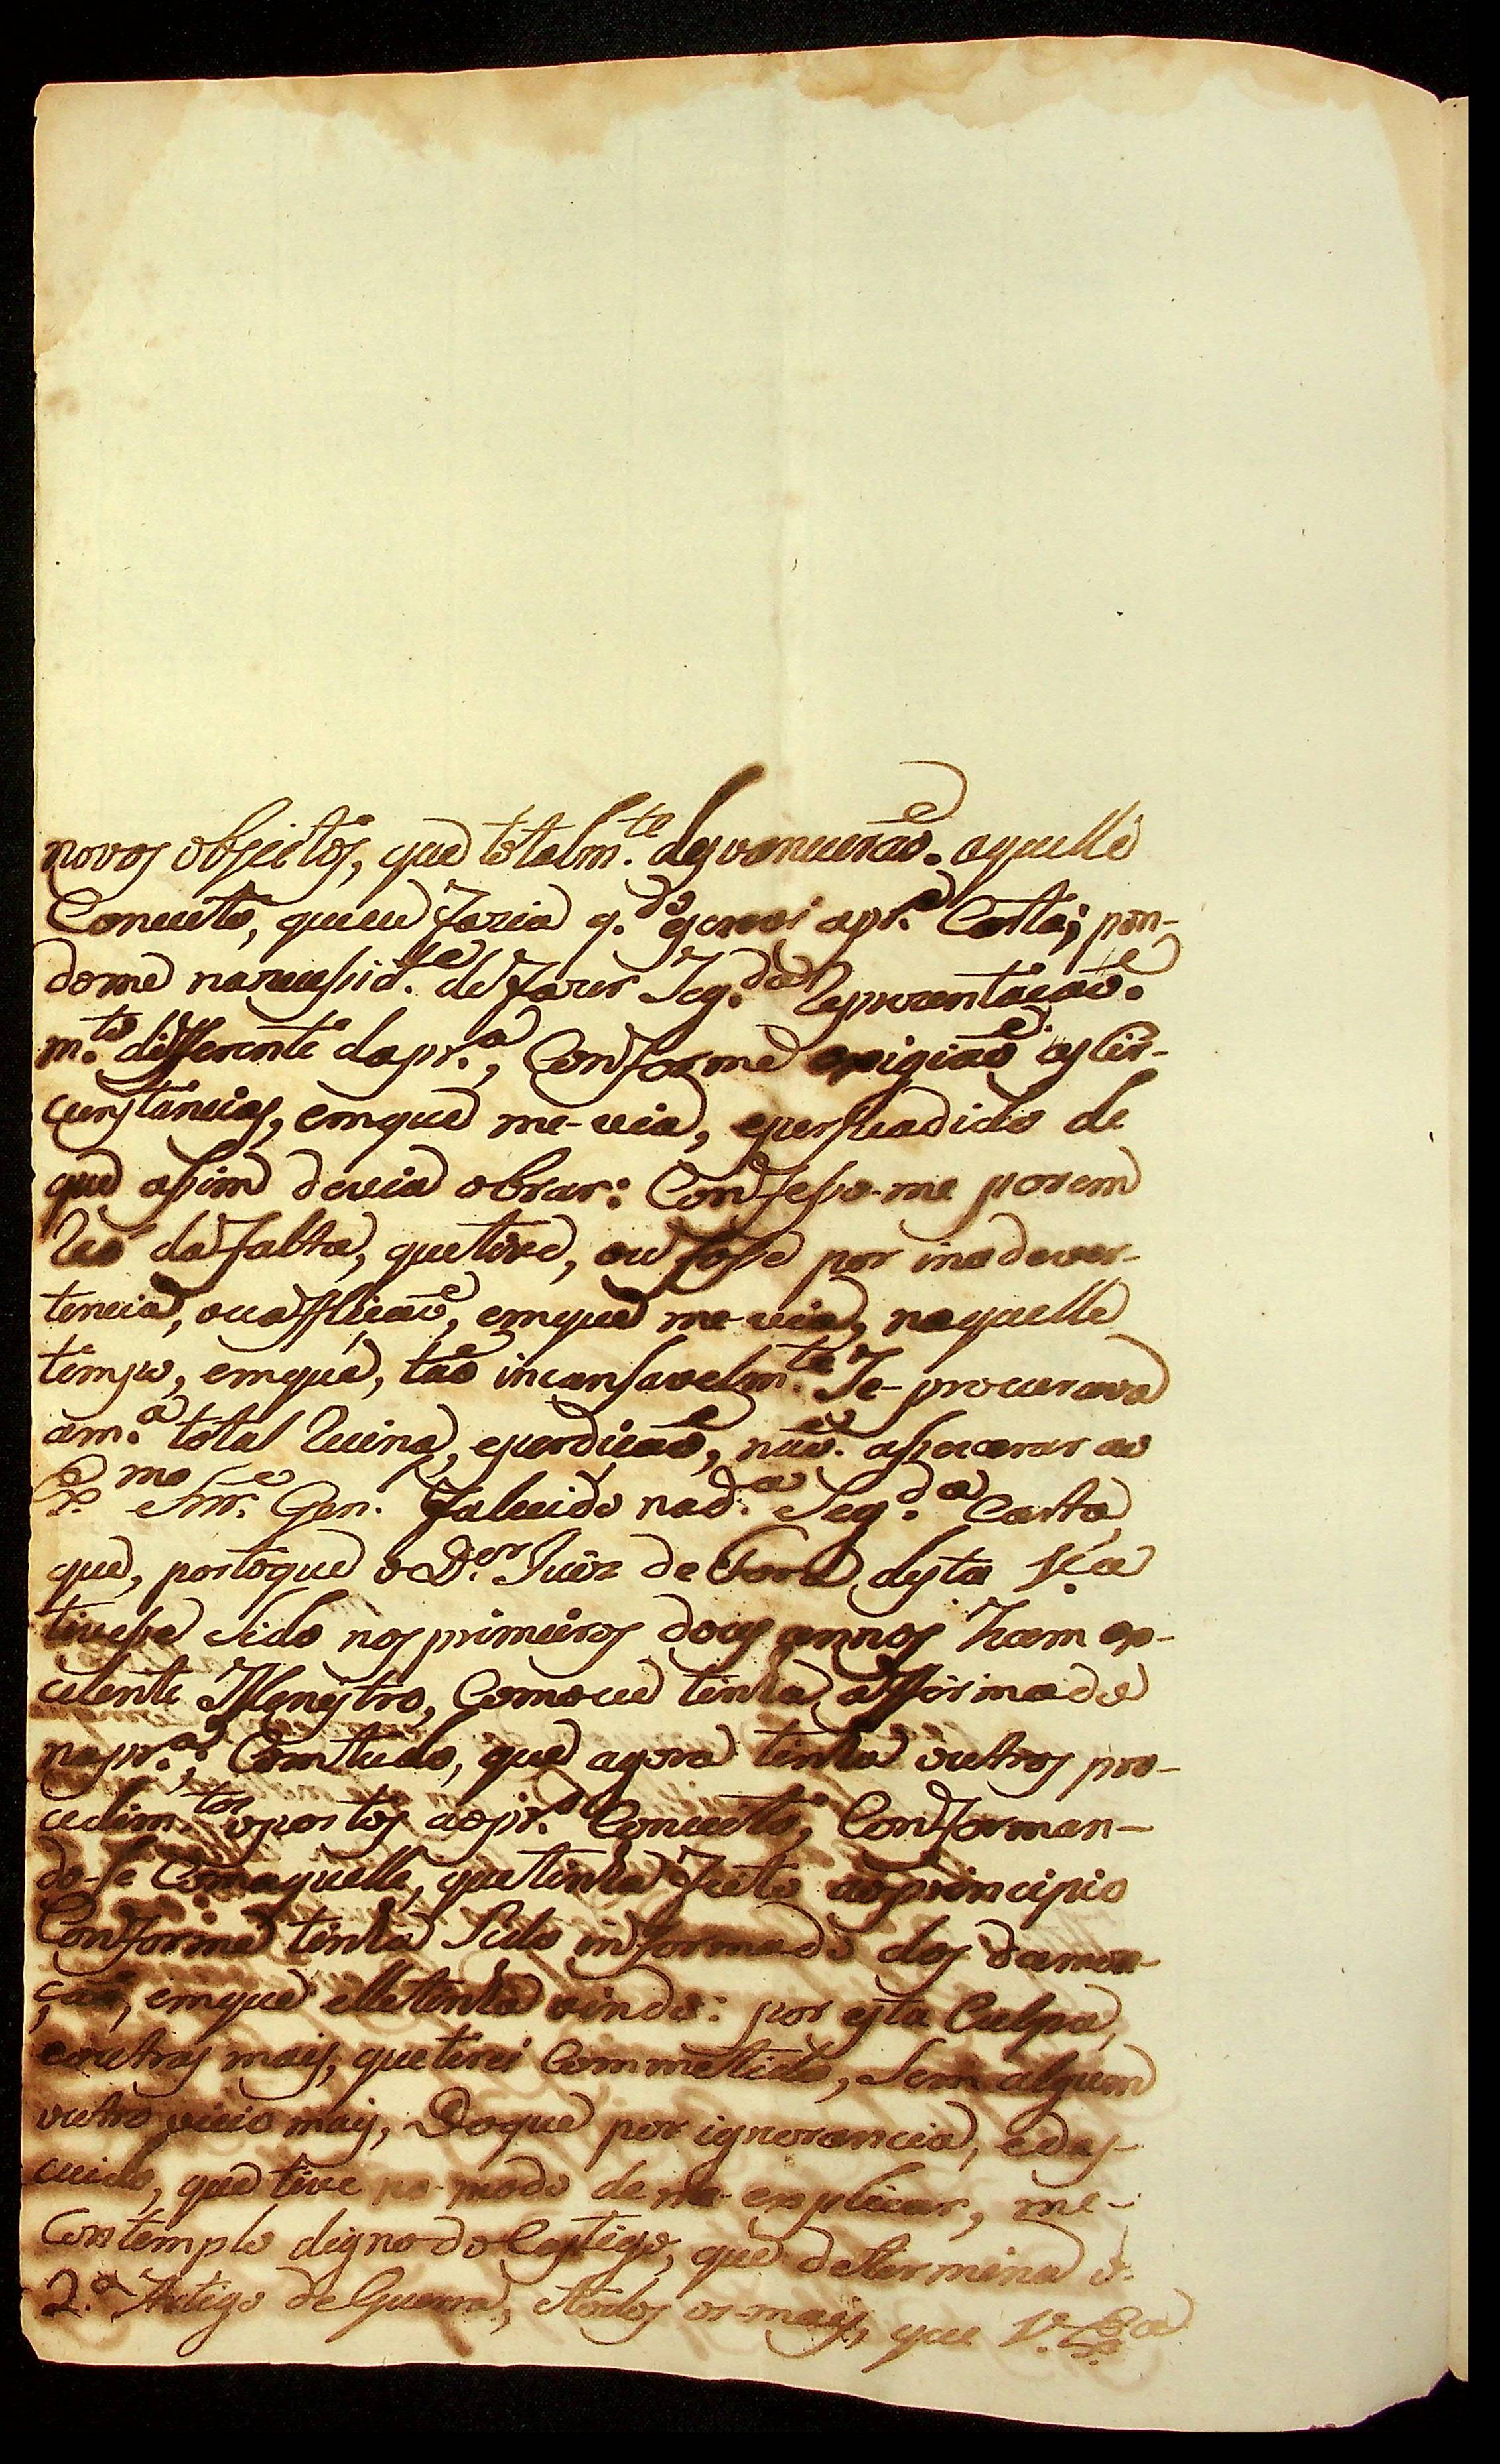 novos objectos, que totalm.te desvanecerão aquelle
Conceito, que eu fazia q.do escrevi a pr.a Carta; pon-
dome na necessid.e de fazer Seg.da Reprezentação
m.to differente da pr.a, Conforme exigião as Cir-
cunstancias, em que me-via, e persuadido de
que assim devia obrar: Confesso-me porem
Reo da falta, que tive, ou fosse por inadever-
tencia, ou afflição, em que me-via, naquelle
tempo, em que, tão incansavelm.te Se-procurava
a m.a total Ruina, e perdição, não asseverar ao
Ex.mo Snr. Gen. falecido na d.a Seg.da Carta,
que, posto que o D.or Juiz de Fora desta V.a
tivesse sido nos primeiros dous annos ham ex-
celente Menistro, Como eu tinha affirmado
na pr.a; Comtudo, que agora tinha outros pro-
cedim.tos opostos ao pr.o Conceito, Conforman-
do-se Com aquelle, que tinha feito ao principio
Conforme tinha Sido informado dos da mon-
ção, em que elle tinha vindo: por esta Culpa,
e outras mais, que terei Commetido, Sem algum
outro vicio mais, Do que por ignorancia, e des-
cuido, que tive no-modo de me-explicar, me-
Contemplo digno do Castigo, que determina o
2.o Artigo de Guerra, e todos os-mais, que V. Ex.a